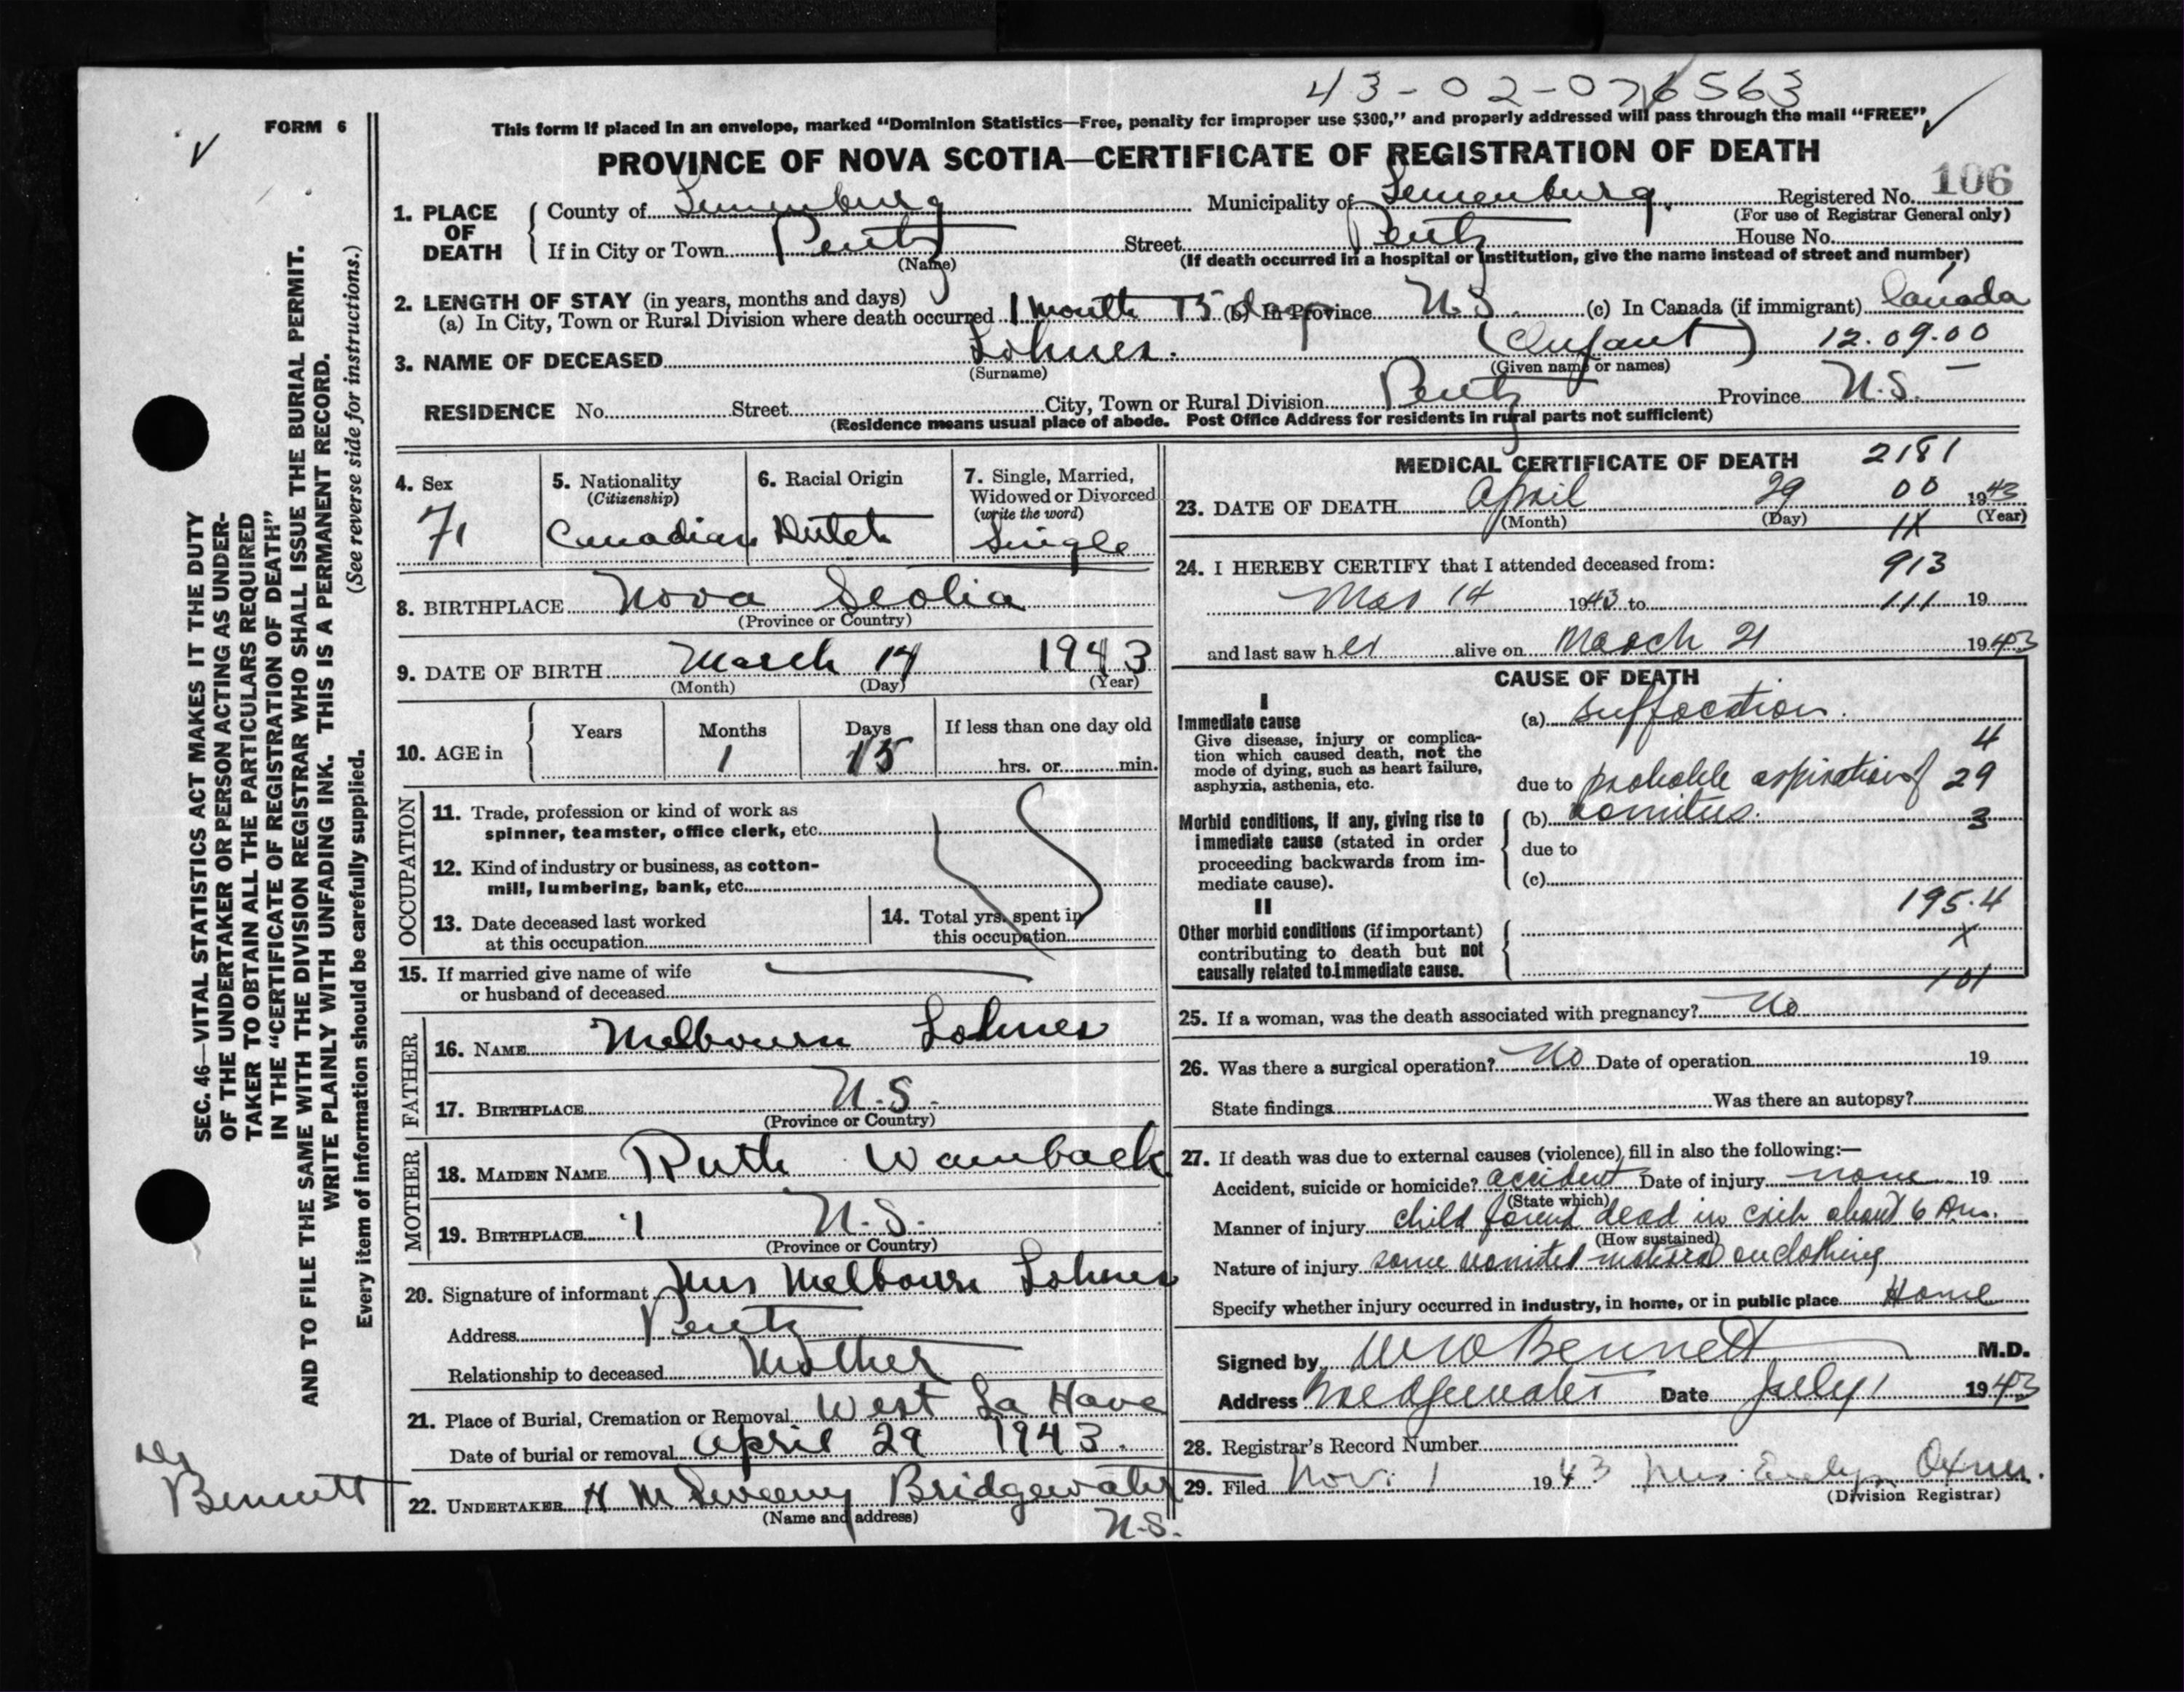 43-02-076563
FORM 6
This form if placed in an envelope, marked "Dominion Statistics—Free, penalty for improper use $300," and properly addressed will pass through the mail "FREE"
PROVINCE OF NOVA SCOTIA—CERTIFICATE OF REGISTRATION OF DEATH
106
1. PLACE OF DEATH
County of Lunenburg Municipality of Lunenburg Registered No.
(For use of Registrar General only)
If in City or Town Pentz Street Pentz House No.
(Name) (If death occurred in a hospital or institution, give the name instead of street and number)
2. LENGTH OF STAY (in years, months and days)
(a) In City, Town or Rural Division where death occurred 1 month 15 days (b) In Province N.S. (c) In Canada (if immigrant) Canada
3. NAME OF DECEASED Lohnes. (Infant) 12.09.00
(Surname) (Given name or names)
RESIDENCE No. Street City, Town or Rural Division Pentz Province N.S.
(Residence means usual place of abode. Post Office Address for residents in rural parts not sufficient)
4. Sex
F.
5. Nationality
(Citizenship)
Canadian
6. Racial Origin
Dutch
7. Single, Married, Widowed or Divorced
(write the word)
Single
8. BIRTHPLACE Nova Scotia
(Province or Country)
9. DATE OF BIRTH March 14 1943
(Month) (Day) (Year)
10. AGE in
Years Months Days If less than one day old
1 15 hrs. or min.
OCCUPATION
11. Trade, profession or kind of work as
spinner, teamster, office clerk, etc.
12. Kind of industry or business, as cotton-
mill, lumbering, bank, etc.
13. Date deceased last worked
at this occupation
14. Total yrs. spent in
this occupation
15. If married give name of wife
or husband of deceased
FATHER
16. NAME Melbourn Lohnes
17. BIRTHPLACE N.S.
(Province or Country)
MOTHER
18. MAIDEN NAME Ruth Wamback
19. BIRTHPLACE N.S.
(Province or Country)
20. Signature of informant Mrs Melbourn Lohnes
Address Pentz
Relationship to deceased Mother
21. Place of Burial, Cremation or Removal West La Have
Date of burial or removal April 29 1943.
22. UNDERTAKER H M Sweeny Bridgewater
(Name and address)
N.S.
MEDICAL CERTIFICATE OF DEATH 2181
23. DATE OF DEATH April 29 00 1943
(Month) (Day) (Year)
1X
24. I HEREBY CERTIFY that I attended deceased from: 913
Mar 14 1943 to 111 19
and last saw her alive on March 21 1943
CAUSE OF DEATH
I
Immediate cause
Give disease, injury or complica-
tion which caused death, not the
mode of dying, such as heart failure,
asphyxia, asthenia, etc.
(a) suffocation.
4
due to probable aspiration of 29
Morbid conditions, if any, giving rise to
immediate cause (stated in order
proceeding backwards from im-
mediate cause).
(b) vomitus. 3
due to
(c)
195.4
II
Other morbid conditions (if important)
contributing to death but not
causally related to immediate cause.
X
101
25. If a woman, was the death associated with pregnancy? No
26. Was there a surgical operation? No Date of operation 19
State findings Was there an autopsy?
27. If death was due to external causes (violence) fill in also the following:—
Accident, suicide or homicide? accident Date of injury none 19
(State which)
Manner of injury child found dead in crib about 6 Am.
(How sustained)
Nature of injury some vomited material on clothing
Specify whether injury occurred in industry, in home, or in public place Home
Signed by W W Bennett M.D.
Address Bridgewater Date July 1 1943
28. Registrar's Record Number
29. Filed Nov. 1 1943 Mrs. Evelyn Oxner.
(Division Registrar)
SEC. 46—VITAL STATISTICS ACT MAKES IT THE DUTY
OF THE UNDERTAKER OR PERSON ACTING AS UNDER-
TAKER TO OBTAIN ALL THE PARTICULARS REQUIRED
IN THE "CERTIFICATE OF REGISTRATION OF DEATH"
AND TO FILE THE SAME WITH THE DIVISION REGISTRAR WHO SHALL ISSUE THE BURIAL PERMIT.
WRITE PLAINLY WITH UNFADING INK. THIS IS A PERMANENT RECORD.
Every item of information should be carefully supplied. (See reverse side for instructions.)
Bennett